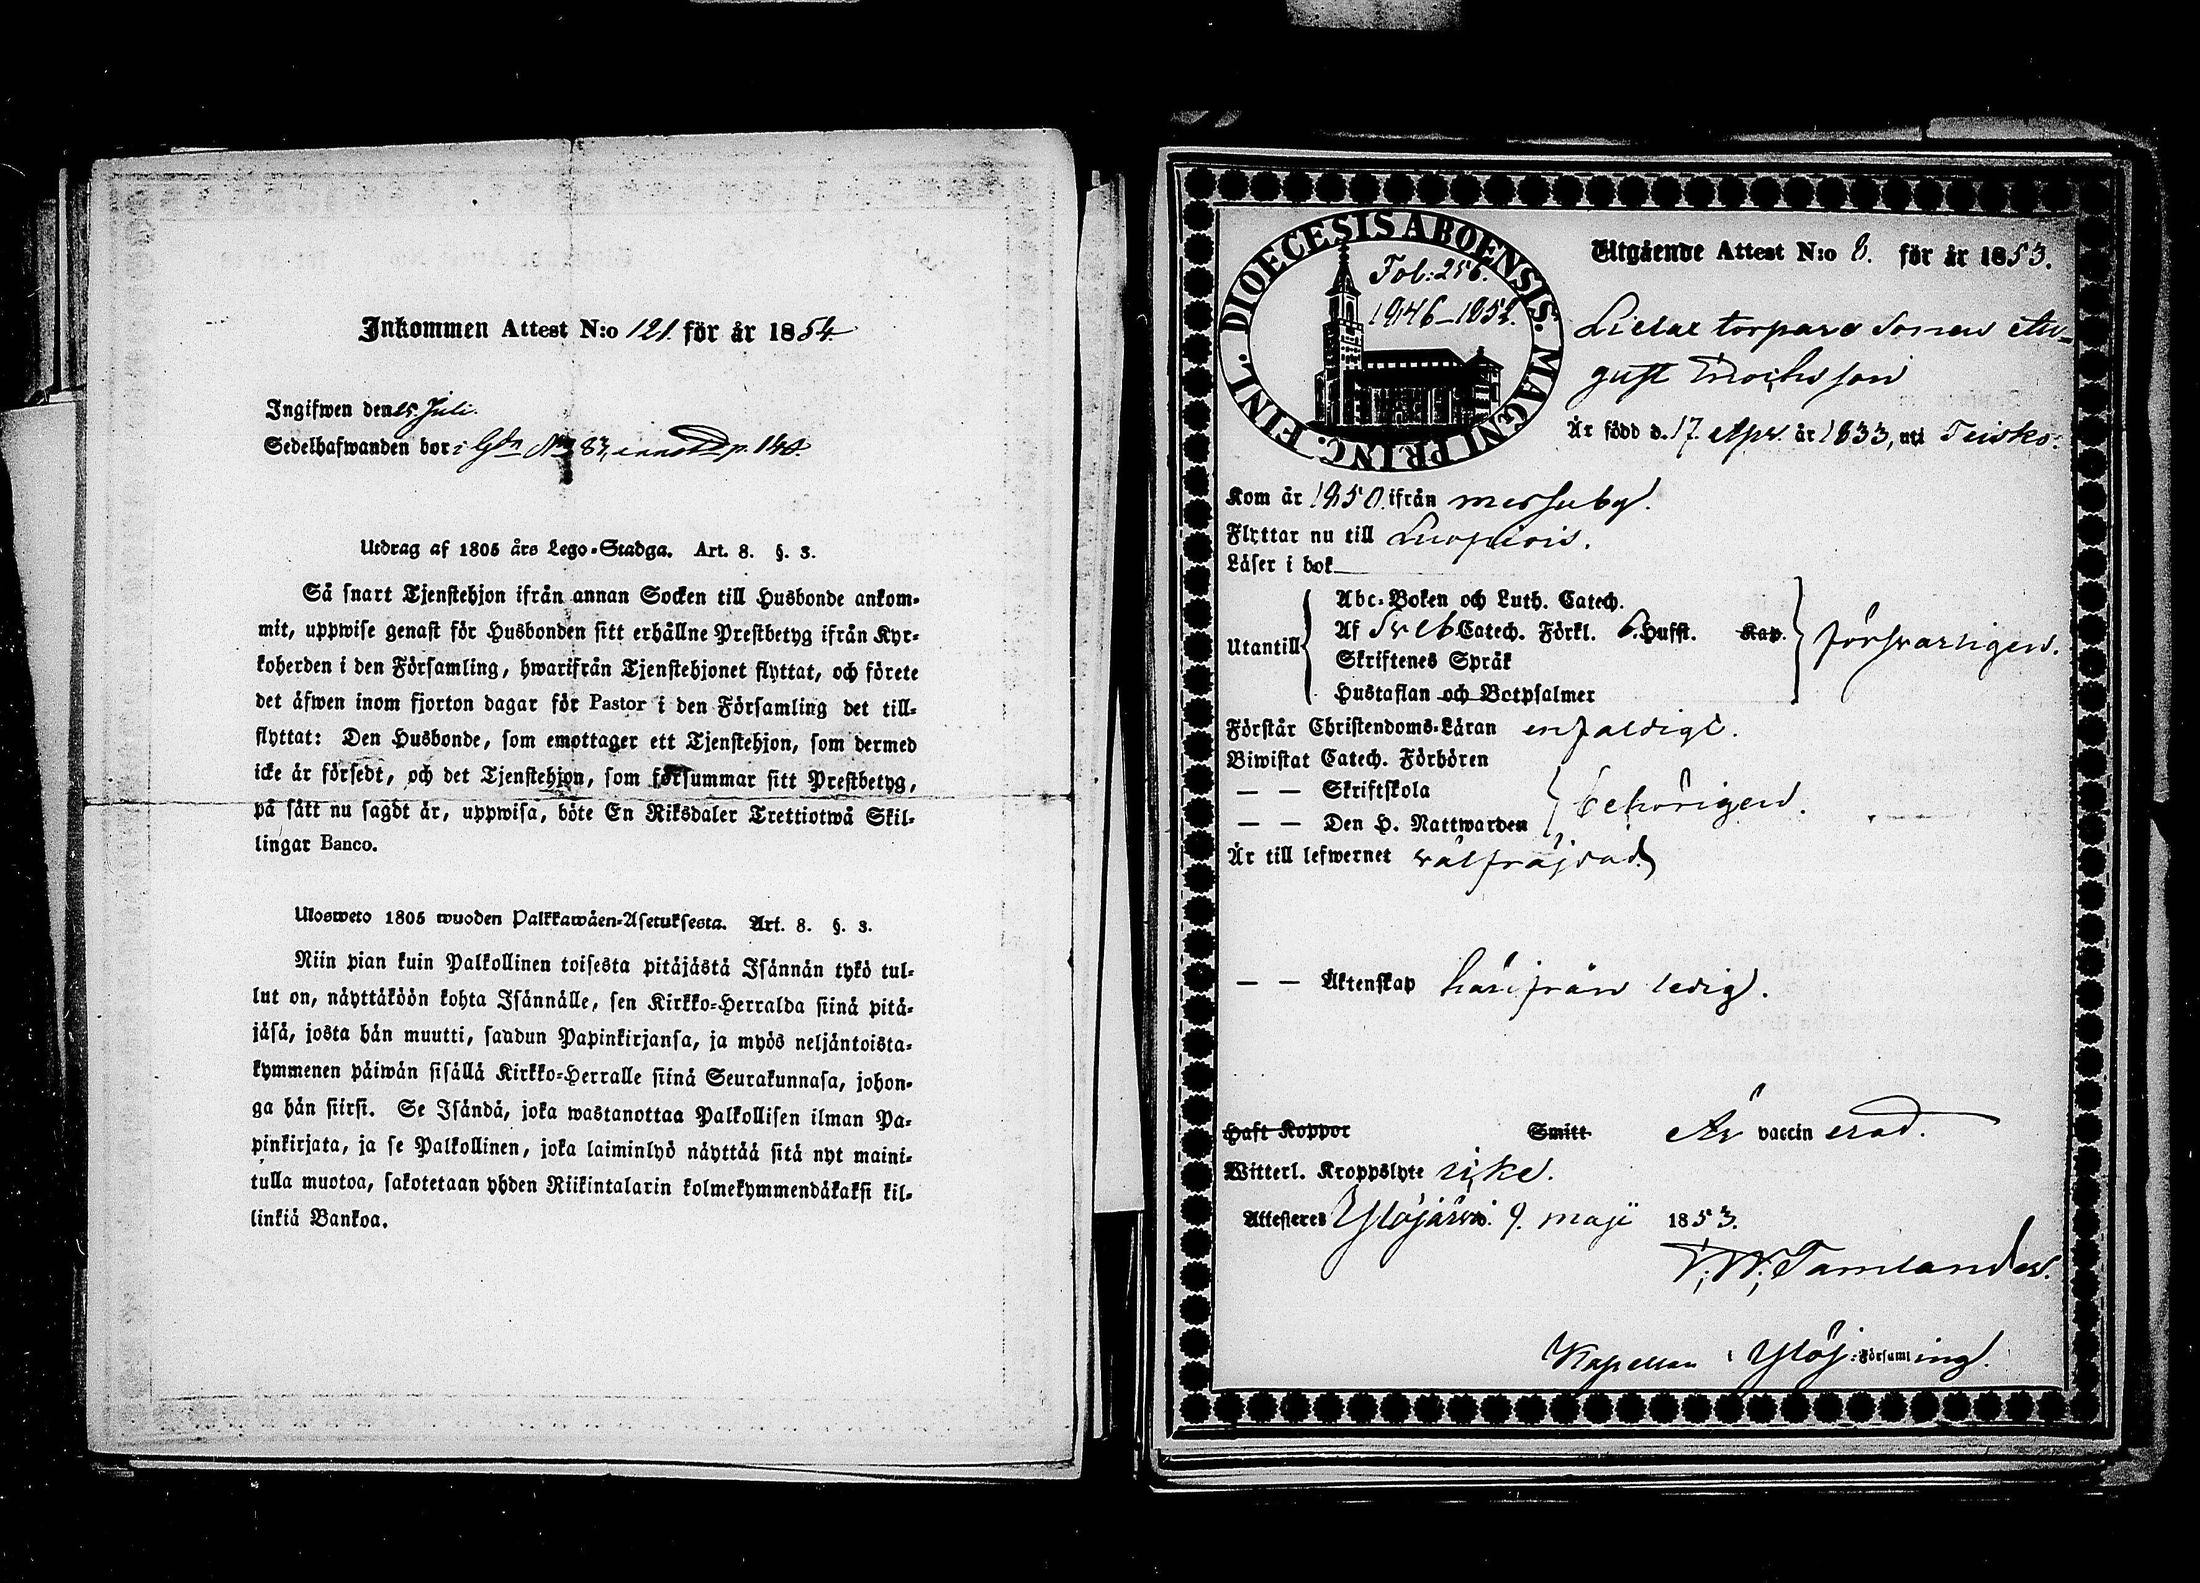 Inkommen Attest N:o 121. för år 1854.
Ingifwen den 25. Juli.
Sedelhafwanden bor i Gdn No 83, p. 140.
Utdrag af 1805 års Lego-Stadga. Art. 8. §. 3.
Så snart Tjenstehjon ifrån annan Socken till Husbonde ankom-
mit, uppwise genast för Husbonden sitt erhållne Prestbetyg ifrån Kyr-
koherden i den Församling, hwarifrån Tjenstehjonet flyttat, och förete
det äfwen inom fjorton dagar för Pastor i den Församling det till-
flyttat: Den Husbonde, som emottager ett Tjenstehjon, som dermed
icke är försedt, och det Tjenstehjon, som försummar sitt Prestbetyg,
på sätt nu sagdt är, uppwisa, böte En Riksdaler Trettiotwå Skil-
lingar Banco.
Ulosweto 1805 wuoden Palkkawäen-Asetuksesta. Art. 8. §. 3.
Niin pian kuin Palkollinen toisesta pitäjästä Isännän tykö tul-
lut on, näyttäköön kohta Isännälle, sen Kirkko-Herralda siinä pitä-
jäsä, josta hän muutti, saadun Papinkirjansa, ja myös neljäntoista-
kymmenen päiwän sisällä Kirkko-Herralle siinä Seurakunnasa, johon-
ga hän siirsi. Se Isändä, joka wastanottaa Palkollisen ilman Pa-
pinkirjata, ja se Palkollinen, joka laiminlyö näyttää sitä nyt maini-
tulla muotoa, sakotetaan yhden Riikintalarin kolmekymmendäkaksi kil-
linkiä Bankoa.
DIOECESIS ABOENSIS. MAGNI PRINC. FINL.
Fol: 256.
1846-1852.
Utgående Attest N:o 8. för år 1853.
torpare sonen Au-
gust Erichsson
Är född d. 17. Apr. år 1833, uti Teisko.
Kom år 1850. ifrån Messuby.
Flyttar nu till Luopiois.
Läser i bok
Utantill
Abc-Boken och Luth. Catech.
Af Sveb Catech. Förkl. 6. Hufst. Kap.
Skriftenes Språk
Hustaflan och Botpsalmer
försvarligen.
Förstår Christendoms-Läran enfaldigt.
Biwistat Catech. Förhören
— — Skriftskola
— — Den H. Nattwarden
behörigen.
Är till lefwernet välfräjdad
— — Äktenskap härifrån ledig.
Haft Koppor Smitt Är vaccinerad.
Witterl. Kroppslyte icke.
Attesteres Ylöjärvi d. 9. Maji 1853.
Tamlander.
Kapellan i Ylöj: Församling.